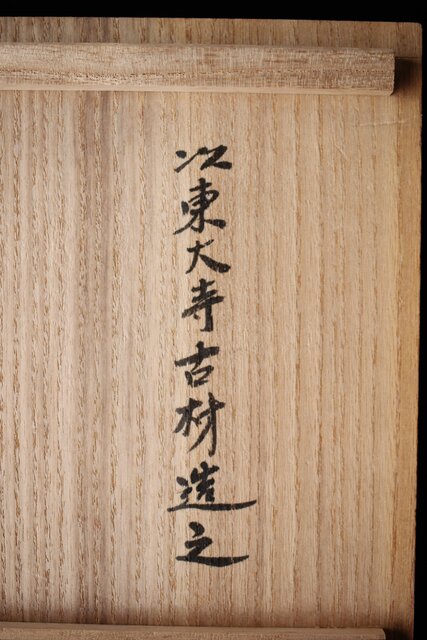 以東大寺古材造之